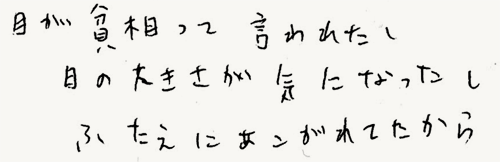 目が貧相って言われたし
目の大きさが気になったし
ふたえにあこがれてたから